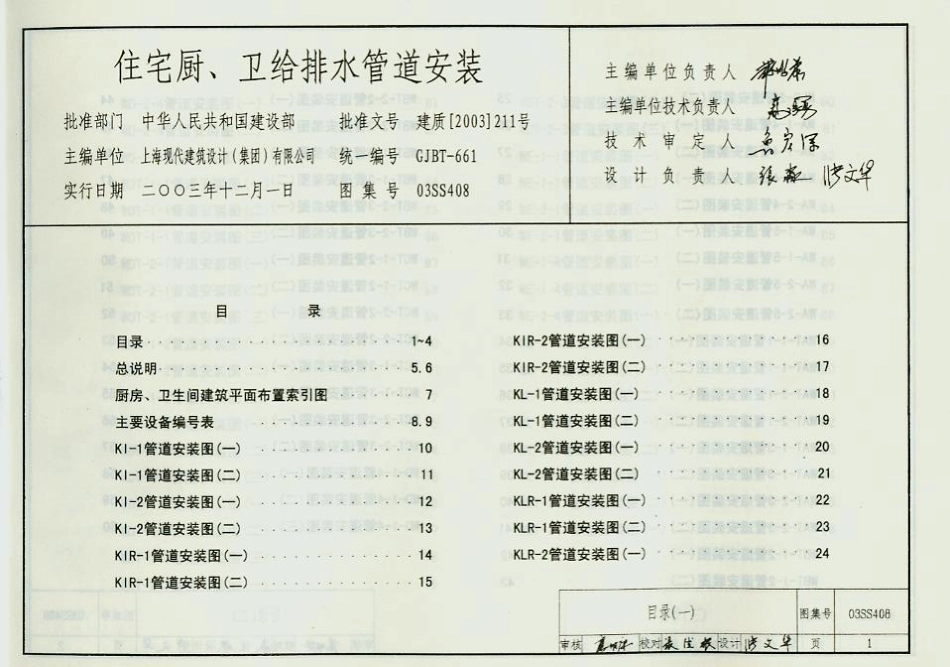 住宅厨、卫给排水管道安装
批准部门 中华人民共和国建设部 批准文号 建质[2003]211号
主编单位 上海现代建筑设计(集团)有限公司 统一编号 GJBT-661
实行日期 二〇〇三年十二月一日 图集号 03SS408
主编单位负责人
主编单位技术负责人
技术审定人
设计负责人 张 洪文华
目 录
目录 1~4
总说明 5.6
厨房、卫生间建筑平面布置索引图 7
主要设备编号表 8.9
KI-1管道安装图(一) 10
KI-1管道安装图(二) 11
KI-2管道安装图(一) 12
KI-2管道安装图(二) 13
KIR-1管道安装图(一) 14
KIR-1管道安装图(二) 15
KIR-2管道安装图(一) 16
KIR-2管道安装图(二) 17
KL-1管道安装图(一) 18
KL-1管道安装图(二) 19
KL-2管道安装图(一) 20
KL-2管道安装图(二) 21
KLR-1管道安装图(一) 22
KLR-1管道安装图(二) 23
KLR-2管道安装图(一) 24
目录(一) 图集号 03SS408
审核 校对 设计 洪文华 页 1